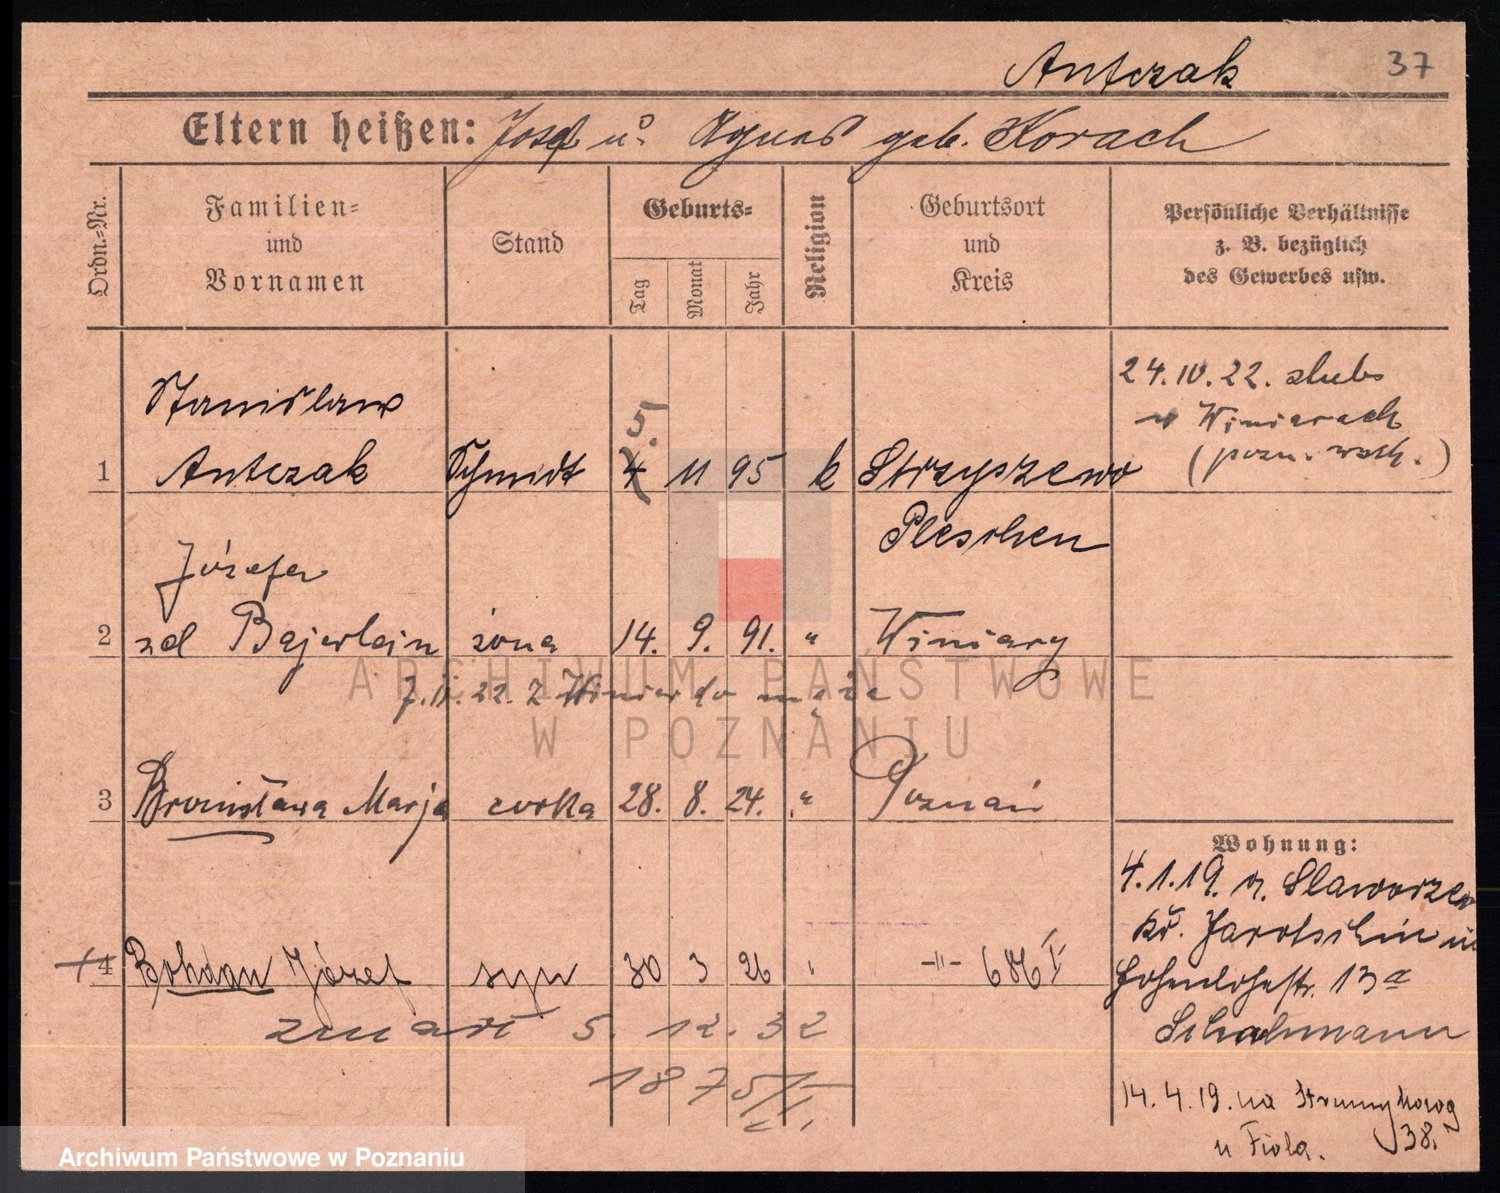 Antczak 37
Eltern heißen: Josef u. Agnes geb. Korach
Ordn.=Nr.
Familien=
und
Vornamen
Stand
Geburts=
Tag
Monat
Jahr
Religion
Geburtsort
und
Kreis
Persönliche Verhältnisse
z. B. bezüglich
des Gewerbes usw.
Stanislaw
5.
24.10.22. slub
w Winiarach
1 Antczak Schmidt 4 11 95 k Strzyszewo
Pleschen
Józefa
2 zd Bajerlein żona 14. 9. 91. " Winiary
7.11.22. z Winiar do męża
3 Bronisława Marja corka 28. 8. 24. " Poznań
Wohnung:
4.1.19. v. Slaworzew
Kr. Jarotschin in
4 Bohdan Józef syn 30 3 26 " -"- 686 I
Hohenlohestr. 13a
zmarł 5. 12. 32
1875/II.
14.4.19. na
38.
u Fiola.
ARCHIWUM PAŃSTWOWE
W POZNANIU
Archiwum Państwowe w Poznaniu